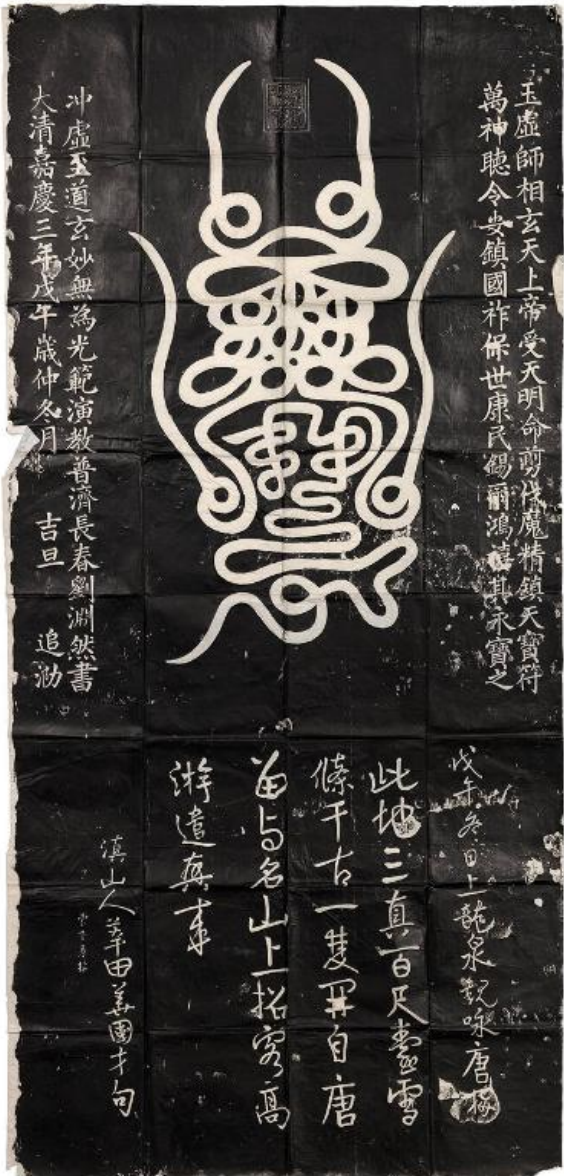 玉虛師相玄天上帝受天明命剪伐魔精鎮天寶符
萬神聽令安鎮國祚保世康民錫爾鴻禧其永寶之
冲虛至道玄妙無為光範演教普濟長春劉淵然書
大清嘉慶三年戊午歲仲冬月 吉旦 追泐
戊午冬日上龍泉觀咏唐梅
此地三真百尺臺雪
條千古一雙开自唐
留与名山上招客高
遊遣興来
滇山人莘田 國才句